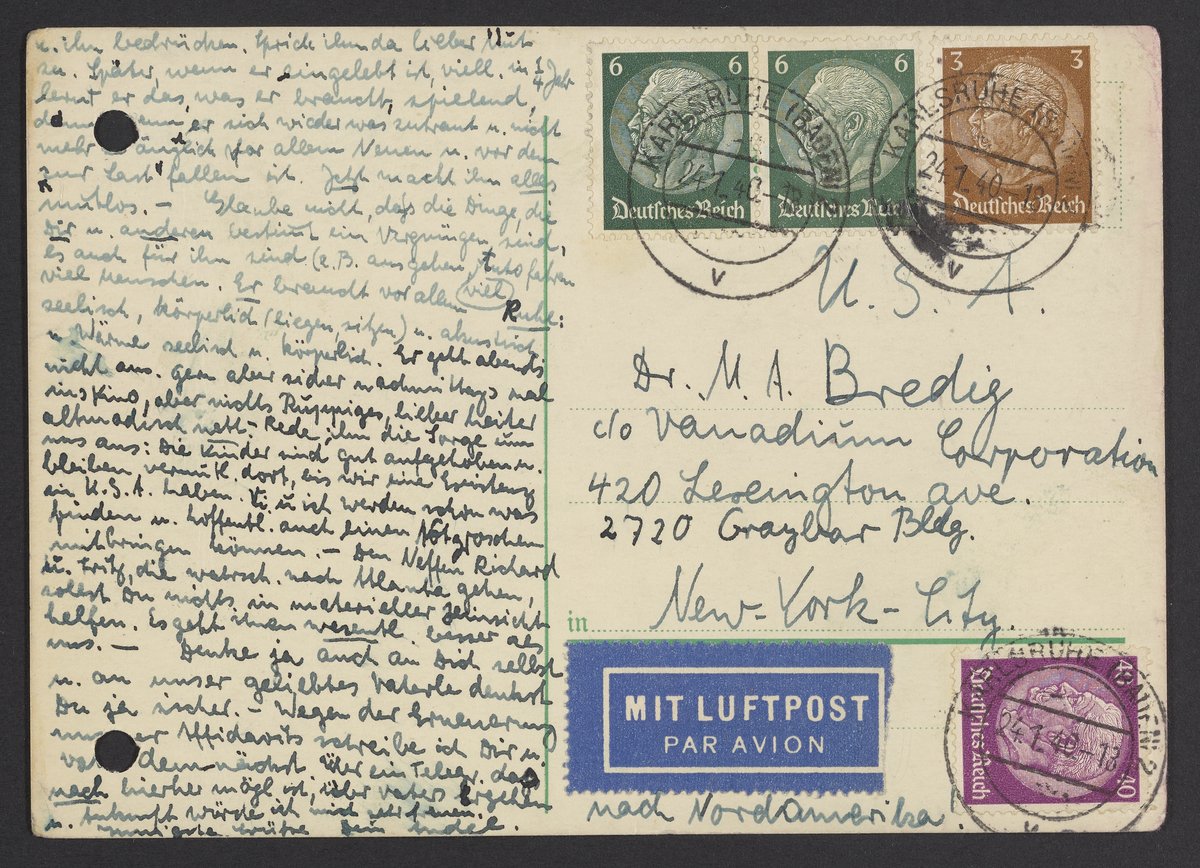 u. ihn bedrücken. Sprich ihm da lieber Mut
zu. Später, wenn er eingelebt ist, viell. in ¼ Jahr
lernt er das, was er braucht, spielend,
wenn er sich wieder was zutraut u. nicht
mehr ängstlich vor allem Neuen u. vor dem
zur Last fallen ist. Jetzt macht ihn alles
mutlos. – Glaube nicht, dass die Dinge, die
Dir u. anderen bestimt ein Vergnügen sind,
es auch für ihn sind (z.B. ausgehen, Auto fahren
viel Menschen. Er braucht vor allem viel Ruhe:
seelisch, körperlich (liegen, sitzen) u. akustisch
u. Wärme seelisch u. körperlich. Er geht abends
nicht aus. Gern aber sicher nachmittags mal
ins Kino, aber nichts Ruppiges, lieber heiter
altmodisch nett – Rede ihm die Sorge um
uns aus: Die Kinder sind gut aufgehoben u.
bleiben vermutl. dort, bis wir eine Existenz
in U.S.A. haben. V. u. ich werden schon was
finden u. hoffentl. auch einen Notgroschen
mitbringen können. – Den Neffen Richard
u. Fritz, die wahrsch. nach Atlanta gehen,
sollst Du nichts in materieller Hinsicht
helfen. Es geht ihnen wesentl. besser als
uns. – Denke ja auch an Dich selbst
u. an unser geliebtes Vaterle denkst
Du ja sicher. – Wegen der Erneuerung
unserer Affidavits schreibe ich Dir u.
demnächst. Über ein Telegr. das
nach hierher mögl. ist, über Vaters Ergehen
u. Ankunft würde ich mich sehr freuen.
Innigste Grüße Dein
6 6
Deutsches Reich
6 6
Deutsches Reich
3 3
Deutsches Reich
KARLSRUHE (BADEN) 2
24.1.40.-18
v
KARLSRUHE (BADEN)
24.1.40.-18
v
U. S. A.
Dr. M. A. Bredig
c/o Vanadium Corporation
420 Lexington ave.
2720 Graybar Bldg.
in New-York-City.
MIT LUFTPOST
PAR AVION
40 40
Deutsches Reich
KARLSRUHE (BADEN) 2
24.1.40-18
v
nach Nordamerika.